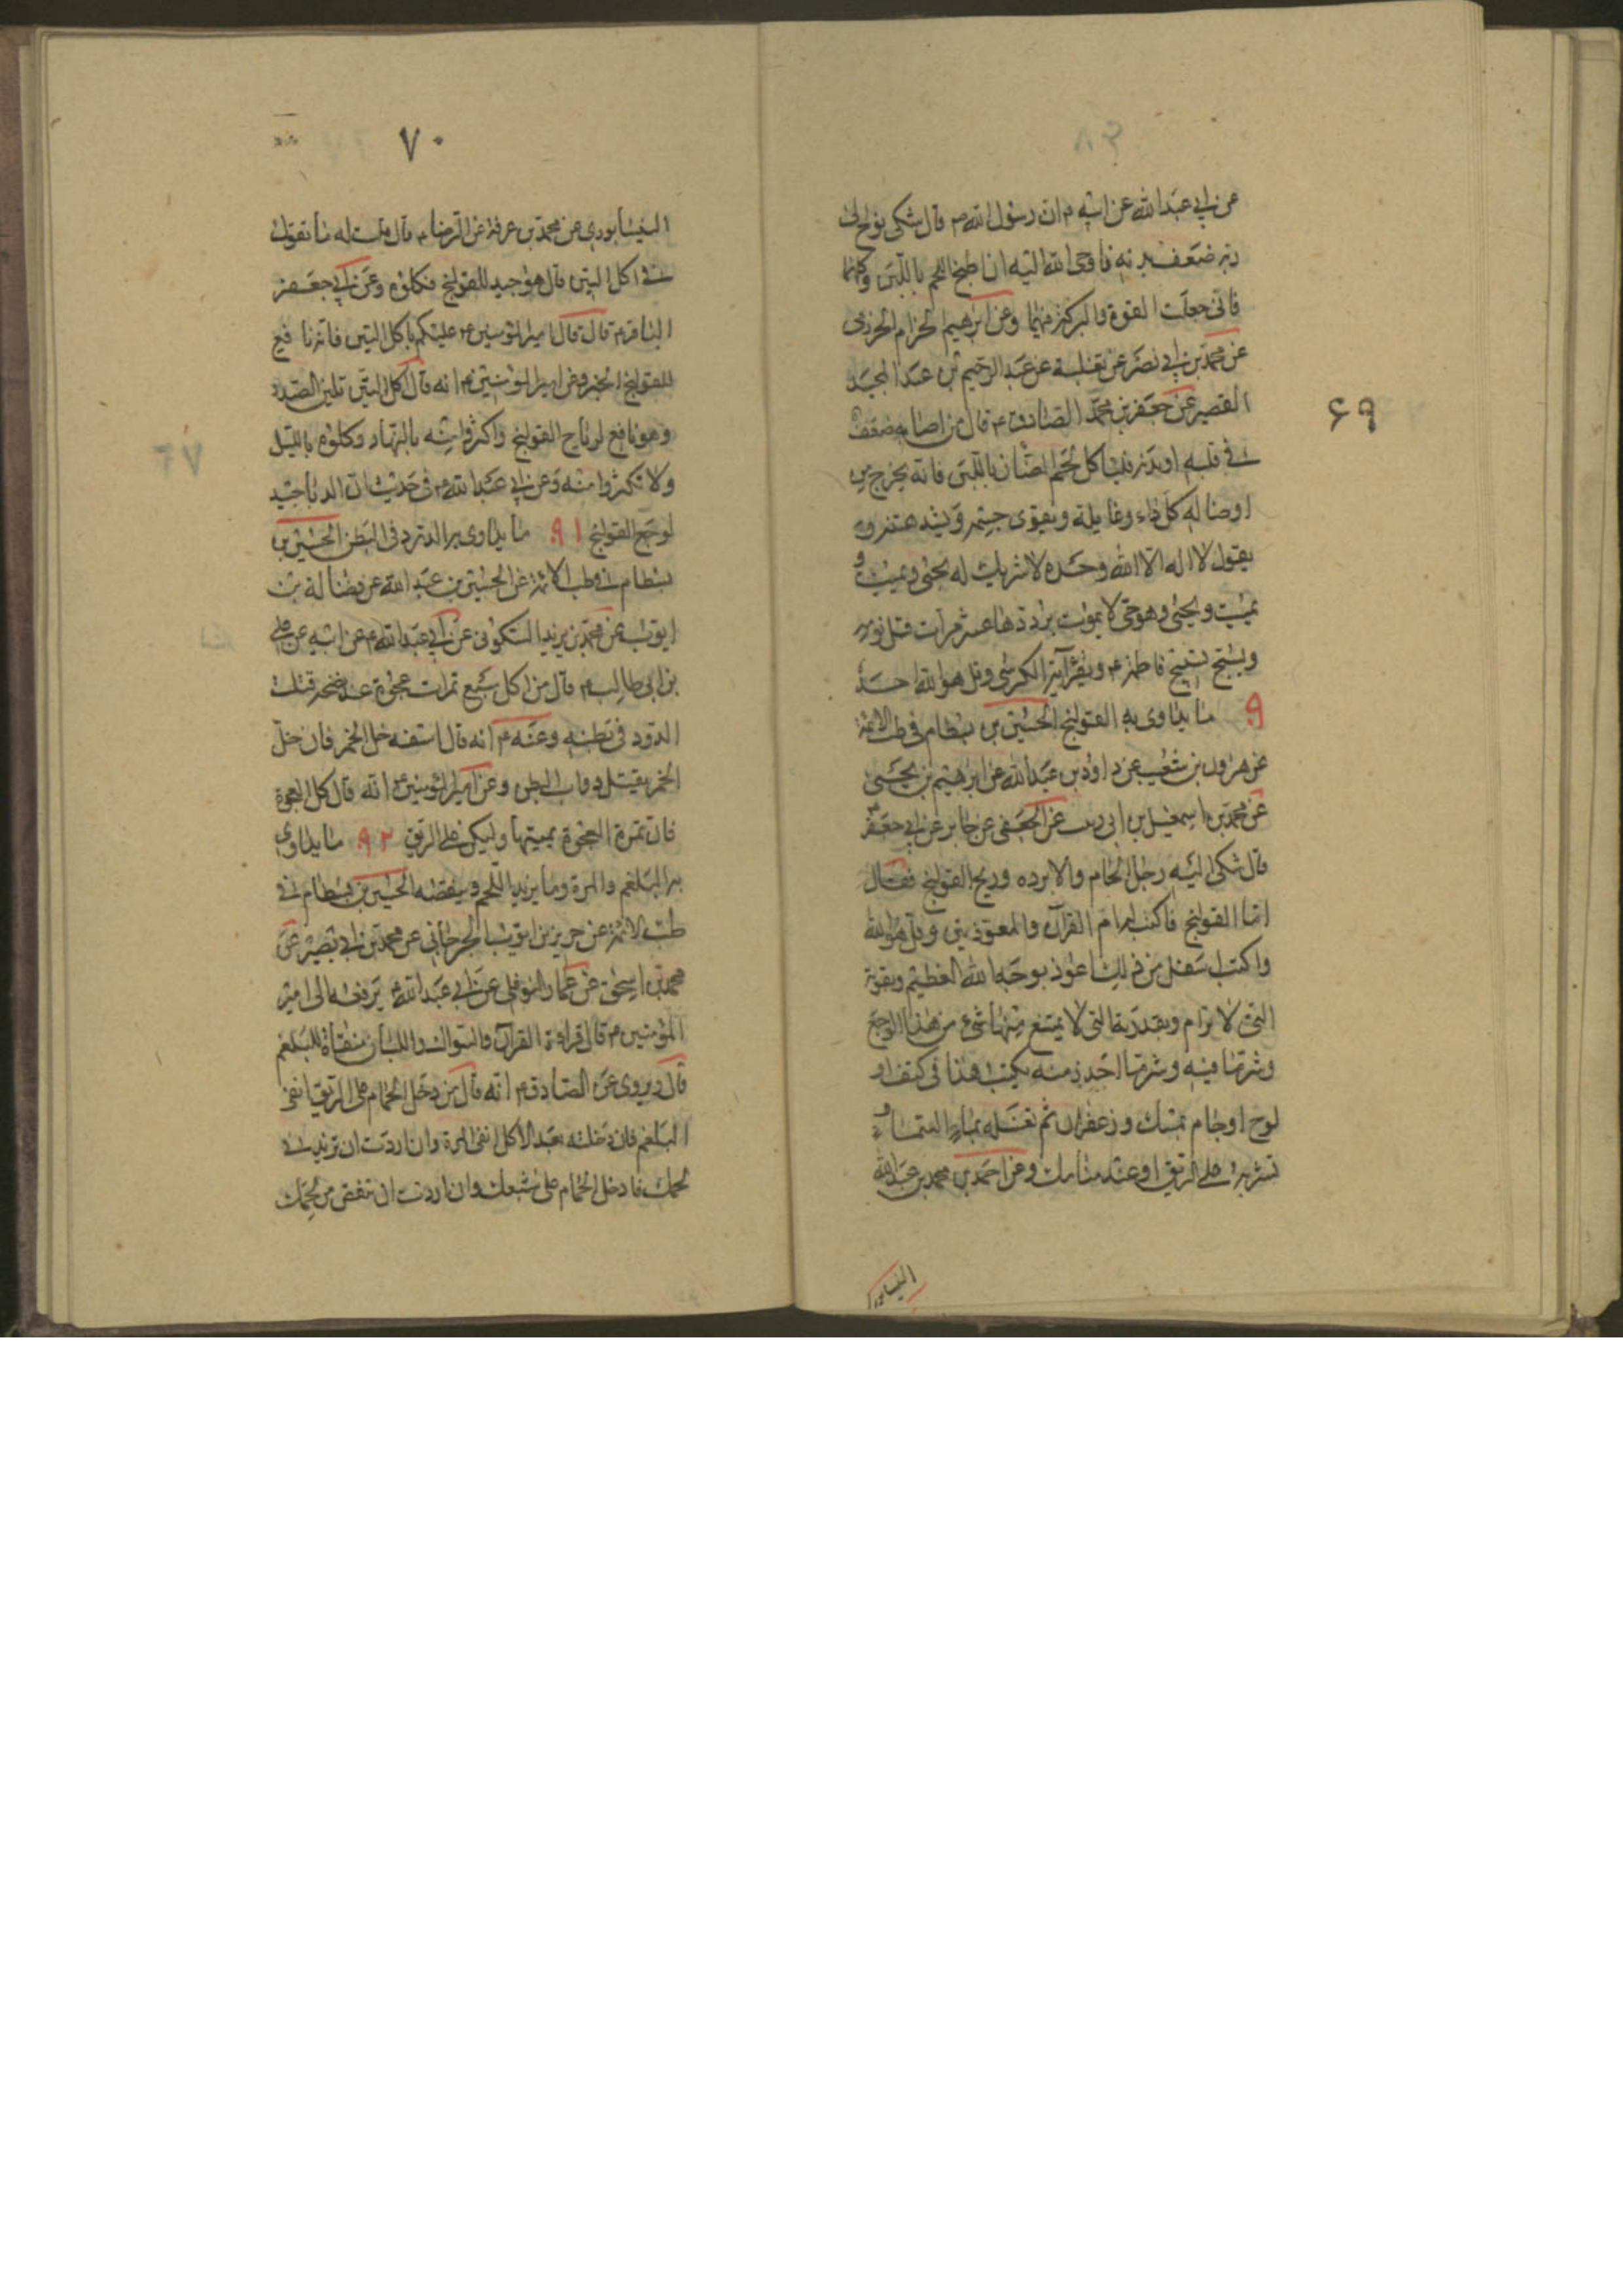 ۶۹
عن ابى عبدالله عن ابيه ع ان رسول الله ص قال شكى نوح الى
ربه ضعف بدنه فاوحى الله اليه ان اطبخ اللحم باللبن وكلهما
فانى جعلت القوة والبركة فيهما وعن ابرهيم الحزام الحرزى
عن محمد بن ابى نصر عن ثعلبة عن عبد الرحيم بن عبد المجيد
القصير عن جعفر بن محمد الصادق ع قال من اصابه ضعف
فى قلبه او بدنه فليأكل لحم الضان باللبن فانه يخرج من
اوصاله كل داء وغايلة ويقوى جسمه ويشد متنه و
يقول لا اله الا الله وحده لا شريك له يحيى ويميت و
يميت ويحيى وهو حى لا يموت يرددها عشر مرات قبل نومه
ويسبح تسبيح فاطمة ع ويقرأ آية الكرسى وقل هو الله احد
۹ ما يداوى به القولنج الحسين بن بسطام فى طب الائمة
عن هرون بن شعيب عن داود بن عبدالله عن ابرهيم بن يحيى
عن محمد بن اسمعيل بن ابى زينب عن الجعفى عن جابر عن ابى جعفر ع
قال شكى اليه رجل الخام والابرده وريح القولنج فقال
اما القولنج فاكتب له ام القرآن والمعوذتين وقل هو الله
واكتب اسفل من ذلك اعوذ بوجه الله العظيم وبقوته
التى لا ترام وبقدرته التى لا يمتنع منها شىء من هذا الوجع
وشر ما فيه وشر ما اجد منه يكتب هذا فى كتف او
لوح او جام بمسك وزعفران ثم تغسله بماء السماء و
تشربه على الريق او عند منامك وعن احمد بن محمد بن عبدالله
النيسابورى
۷۰
النيسابورى عن محمد بن عرفة عن الرضا ع قال قلت له ما تقول
فى اكل التين قال هو جيد للقولنج فكلوه وعن ابى جعفر
الباقر ع قال قال امير المؤمنين ع عليكم باكل التين فانه نافع
للقولنج الخبر وعن امير المؤمنين ع انه قال اكل التين تلين السدد
وهو نافع لرياح القولنج واكثروا منه بالنهار وكلوه بالليل
ولا تكثروا منه وعن ابى عبدالله ع فى حديث ان الدبا جيد
لوجع القولنج ۹۱ ما يداوى به الدود فى البطن الحسين بن
بسطام فى طب الائمة عن الحسين بن عبد الله عن فضالة بن
ايوب عن محمد بن يزيد السكونى عن ابى عبدالله ع عن ابيه عن على
بن ابى طالب ع قال من اكل سبع تمرات عجوة عند مضجعه قتلت
الدود فى بطنه وعنه ع انه قال اسقه خل الخمر فان خل
الخمر يقتل دواب البطن وعن امير المؤمنين ع انه قال كل العجوة
فان تمرة العجوة يميتها وليكن على الريق ۹۲ ما يداوى
به البلغم والمرة وما يزيد اللحم وينقصه الحسين بن بسطام فى
طب الائمة عن حريز بن ايوب الجرجانى عن محمد بن ابى نصير عن
محمد بن اسحق عن عمار النوفلى عن ابى عبدالله ع يرفعه الى امير
المؤمنين ع قال قراءة القرآن والسواك واللبان منقاة للبلغم
قال ويروى عن الصادق ع انه قال من دخل الحمام على الريق انقى
البلغم فان دخلته بعد الاكل انقى المرة وان اردت ان تزيد فى
لحمك فادخل الحمام على شبعك وان اردت ان تنقص من لحمك